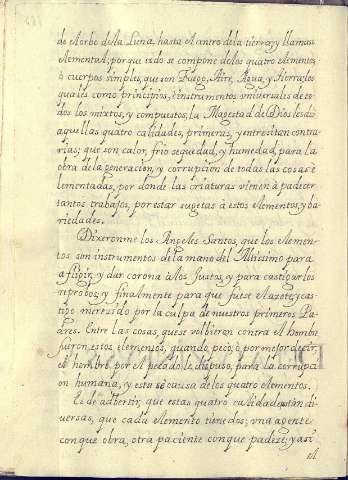 de el orbe de la Luna, hasta el antro de la tierra; y llamase
elemental; porque todo se compone de los quatro elementos,
ò cuerpos simples, que son Fuego, Aire, Agua, y Tierra; los
quales como principios, è instrumentos vniversales de to-
dos los mixtos, y compuestos, la Magestad de Dios les diò
aquellas quatro calidades, primeras, y entre si tan contra-
rias; que son calor, frio sequedad, y humedad, para la
obra de la generacion, y corrupcion de todas las cosas e-
lementadas, por donde las criaturas vienen à padecer
tantos trabajos, por estar sugetas à estos elementos, y ba-
riedades.
Dixeronme los Angeles Santos, que los elemen-
tos son instrumentos de la mano del Altissimo para
afligir, y dar corona à los Justos, y para castigar los
reprobos; y finalmente para que fuese Azote, y cas-
tigo merezido por la culpa de nuestros primeros Pa-
dres. Entre las cosas que se volbieron contra el hombre
fueron estos elementos, quando pecò; ò por mejor decir,
el hombre, por el pecado le dispuso, para la corrupci-
on humana, y esta se causa de los quatro elementos.
Es de adbertir, que estas quatro calidades tan di-
versas, que cada elemento tiene dos; vna agente
con que obra, otra paciente con que padeze; y asi
el